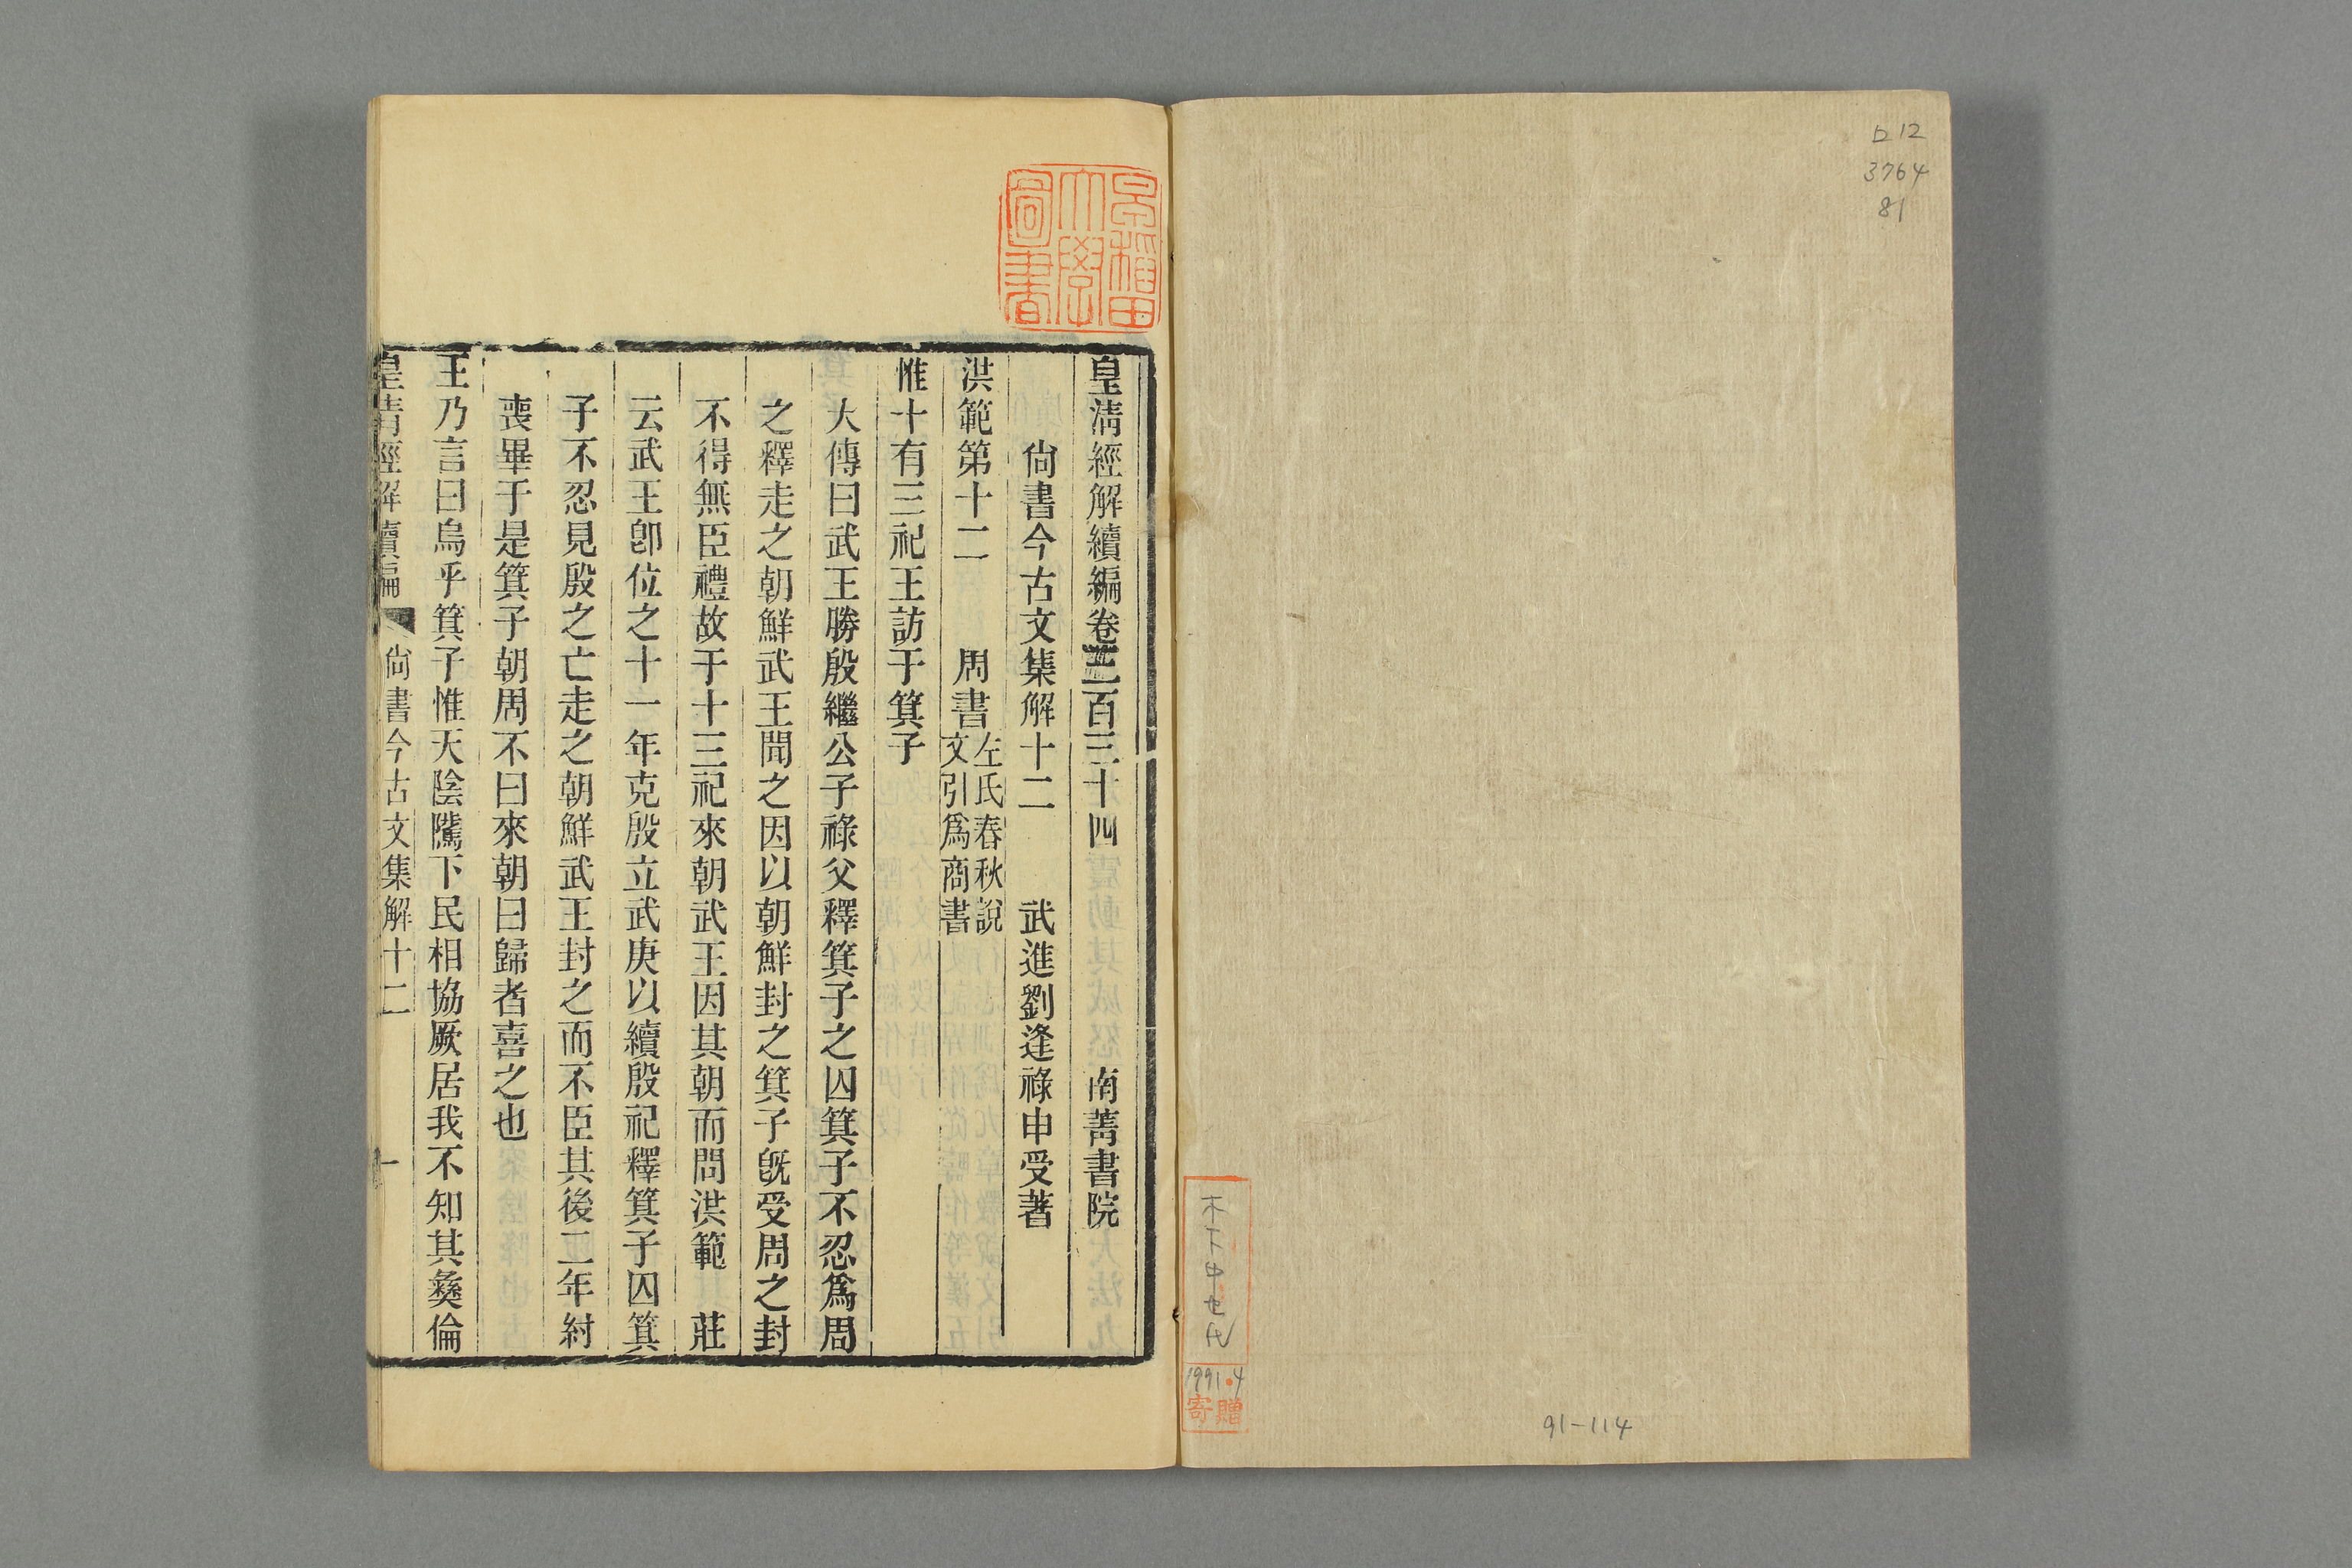 ロ12
3764
81
91-114
1991.4
寄贈
早稻田大學圖書
皇淸經解續編卷三百三十四 南菁書院
尙書今古文集解十二 武進劉逢祿申受著
洪範第十二 周書左氏春秋說文引爲商書
惟十有三祀王訪于箕子
大傳曰武王勝殷繼公子祿父釋箕子之囚箕子不忍爲周
之釋走之朝鮮武王聞之因以朝鮮封之箕子旣受周之封
不得無臣禮故于十三祀來朝武王因其朝而問洪範 莊
云武王卽位之十一年克殷立武庚以續殷祀釋箕子囚箕
子不忍見殷之亡走之朝鮮武王封之而不臣其後二年紂
喪畢于是箕子朝周不曰來朝曰歸者喜之也
王乃言曰烏乎箕子惟天陰隲下民相協厥居我不知其彝倫
皇淸經解續編 尙書今古文集解十二 一